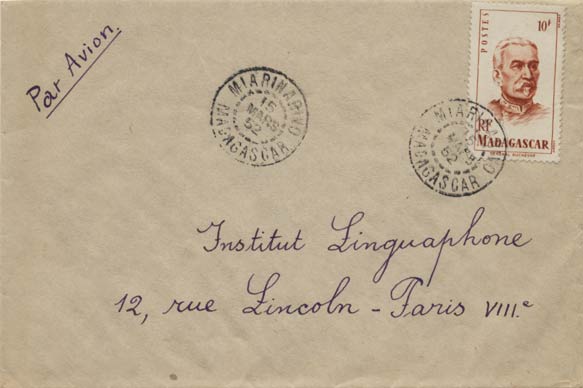 Par Avion.
POSTES
10F
RF
MADAGASCAR
MIARINARIVO
15
MARS
52
MADAGASCAR
MIARINARIVO
15
MARS
52
MADAGASCAR
Institut Linguaphone
12, rue Lincoln - Paris VIII.e